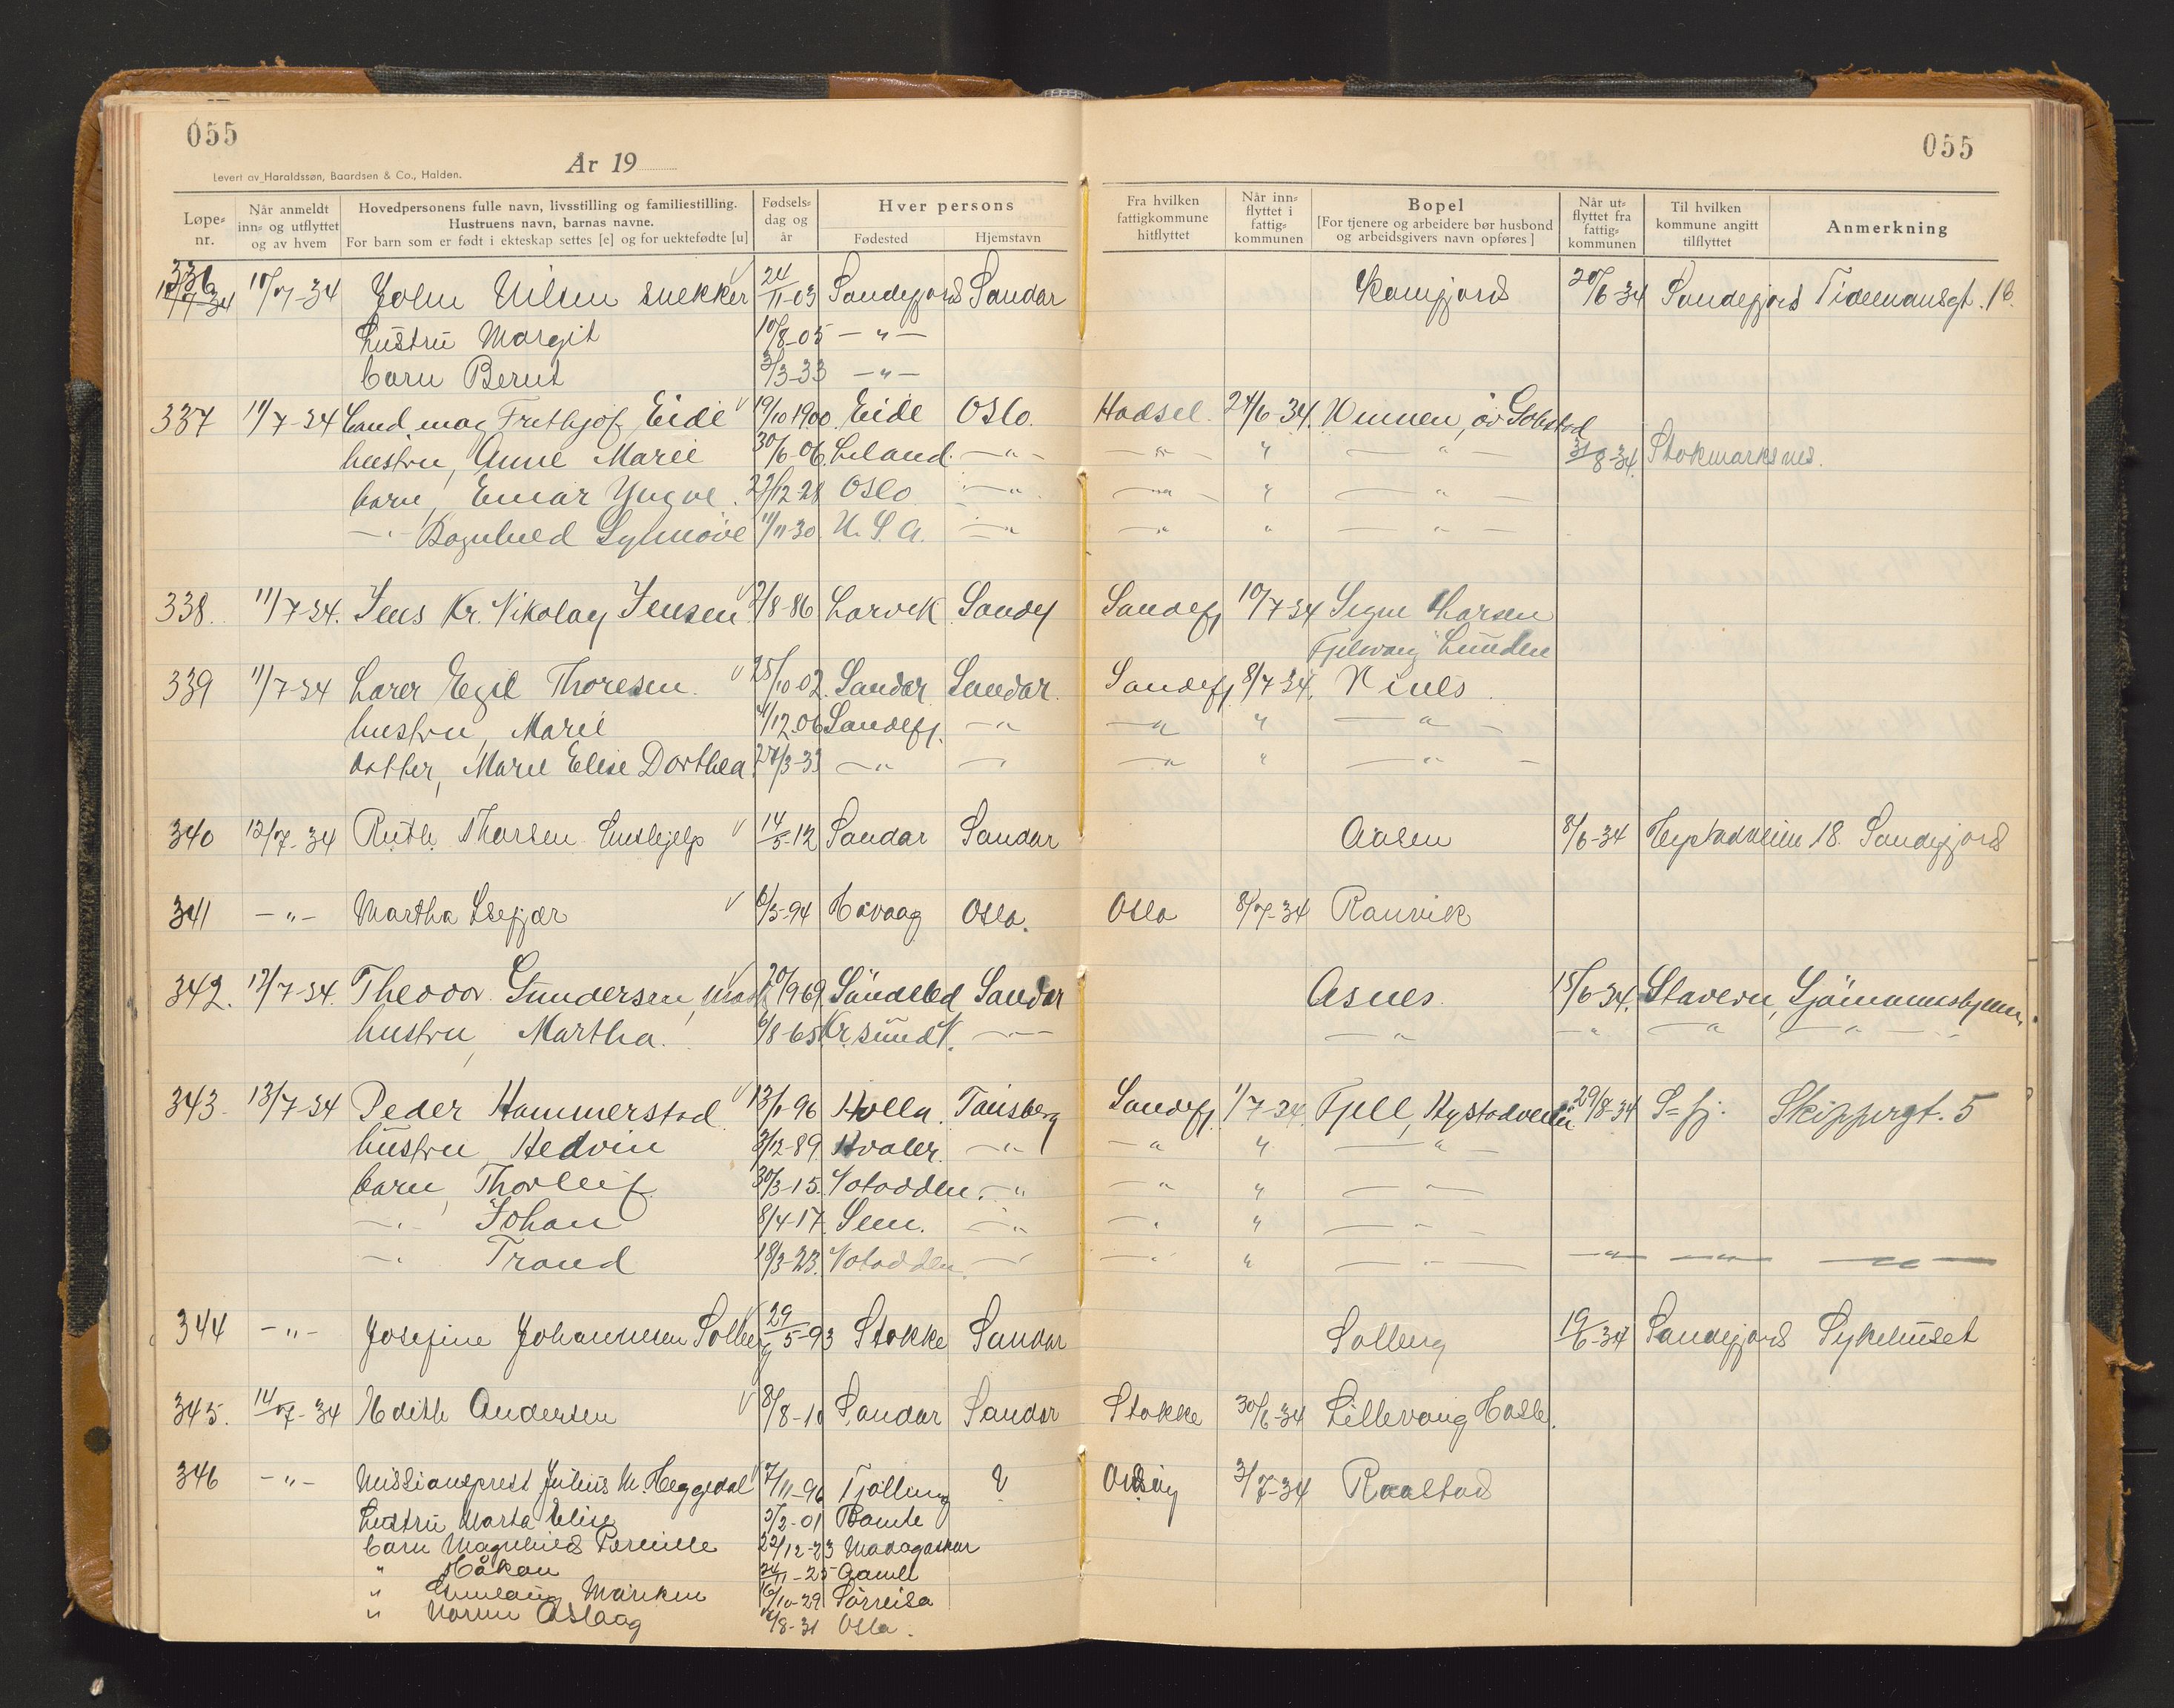 055
055
År 19
Levert av Haraldssøn, Baardsen & Co., Halden.
Løpe-nr. Når anmeldt inn- og utflyttet og av hvem Hovedpersonens fulle navn, livsstilling og familiestilling. Hustruens navn, barnas navne. For barn som er født i ekteskap settes [e] og for uektefødte [u] Fødsels-dag og år Hver persons Fødested Hjemstavn Fra hvilken fattigkommune hitflyttet Når inn-flyttet i fattig-kommunen Bopel [For tjenere og arbeidere bør husbond og arbeidsgivers navn opføres] Når ut-flyttet fra fattig-kommunen Til hvilken kommune angitt tilflyttet Anmerkning
336 10/7-34 John Nilsen snekker 24/11-03 Sandefjord Sandar Kamfjord 20/6-34 Sandefjord Tidemansgt. 18.
hustru Margit 10/8-05 -"-
barn Bernt 3/3-33 -"-
337 11/7-34 Cand. mag Frithjof Eide 19/10 1900. Eide Oslo. Hadsel. 24/6-34. Unnen, öv Gokstad
hustru, Anne Marie 30/6-06. Leland. -"- -"- " -"- 31/8-34. Stokmarksnes.
barn, Einar Yngve. 27/12-28 Oslo -"- -"- " -"-
-"- Ragnhild Synnöve 11/11-30 U.S.A. -"- -"- " -"-
338. 11/7-34. Jens Kr. Nikolay Jensen 2/8-86 Larvik Sandef Sandefj 10/7-34 Signe Thorsen
Fjellvang Lunden
339 11/7-34 Lærer Egil Thoresen. 25/10-02. Sandar Sandar. Sandefj. 8/7-34. Nines
hustru, Marie 4/12.06 Sandefj. -"- -"- " -"-
datter, Marie Elise Dorthea. 27/3-33 -"- -"- -"- " -"-
340 12/7-34 Ruth Thorsen Hushjelp 14/5-12 Sandar Sandar Aasen 8/6-34 Hystadveien 18. Sandefjord
341 -"- Martha Isefjær 6/5-94 Høvaag Oslo. Oslo 8/7-34 Ranvik
342. 12/7-34. Theodor Gundersen, 20/1969 Söndeled Sandar Asnes. 15/6-34. Stavern, Sjömannshjem.
hustru, Martha. 6/8-65 Kr.sund N. -"- -"- -"- -"- -"-
343. 13/7-34 Peder Hammerstad 13/1-96 Holla. Tönsberg Sandefj. 1/7-34 Fjell, Hystadveien 29/8-34 S-fj. Skippergt. 5
hustru Hedvin 3/12-89. Hvaler. -"- -"- " -"-
barn, Thorleif 30/3-15. Notodden. -"- -"- " -"-
-"- Johan 8/4-17. Sem. -"- -"- " -"-
-"- Trond 18/3-23. Notodden. -"- -"- " -"- -"- -"- -"-
344 -"- Josefine Johannesen Solberg 29/5-93 Stokke Sandar Solberg 19/6-34 Sandefjord Sykehuset
345. 14/7-34 Edith Andersen 8/8-10 Sandar Sandar Stokke 30/6-34 Lillevang Hasle.
346 -"- Missionsprest Julius M. Heggedal 7/11-96 Tjølling ? 3/7-34 Raastad
Hustru Marta Elise 5/2-01 Bamle
barn Magnhild Pernille 22/12-23 Madagaskar
" Håkon 24/11-25 Bamle
" Gunlaug 16/10-29 Sörreisa
" Norun Åslaug 8-31 Oslo.